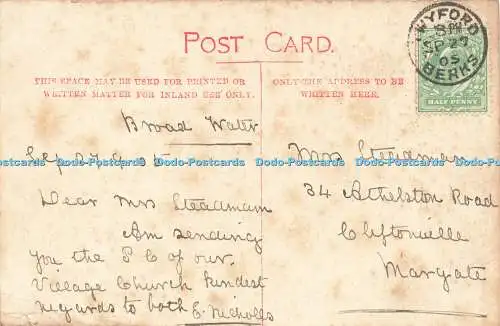 POST CARD.
THIS SPACE MAY BE USED FOR PRINTED OR
WRITTEN MATTER FOR INLAND USE ONLY.
ONLY THE ADDRESS TO BE
WRITTEN HERE.
WYFORD
SP 27
05
BERKS
HALF PENNY
Broad Water
Sep 27th 05
Dear Mrs Steadman
Am sending
you the P C of our
Village Church kindest
regards to both E. Nicholls
Mrs Steadman
34 Athelston Road
Cliftonville
Margate
Dodo-Postcards Dodo-Postcards Dodo-Postcards Dodo-Postcards Dodo-Postcards